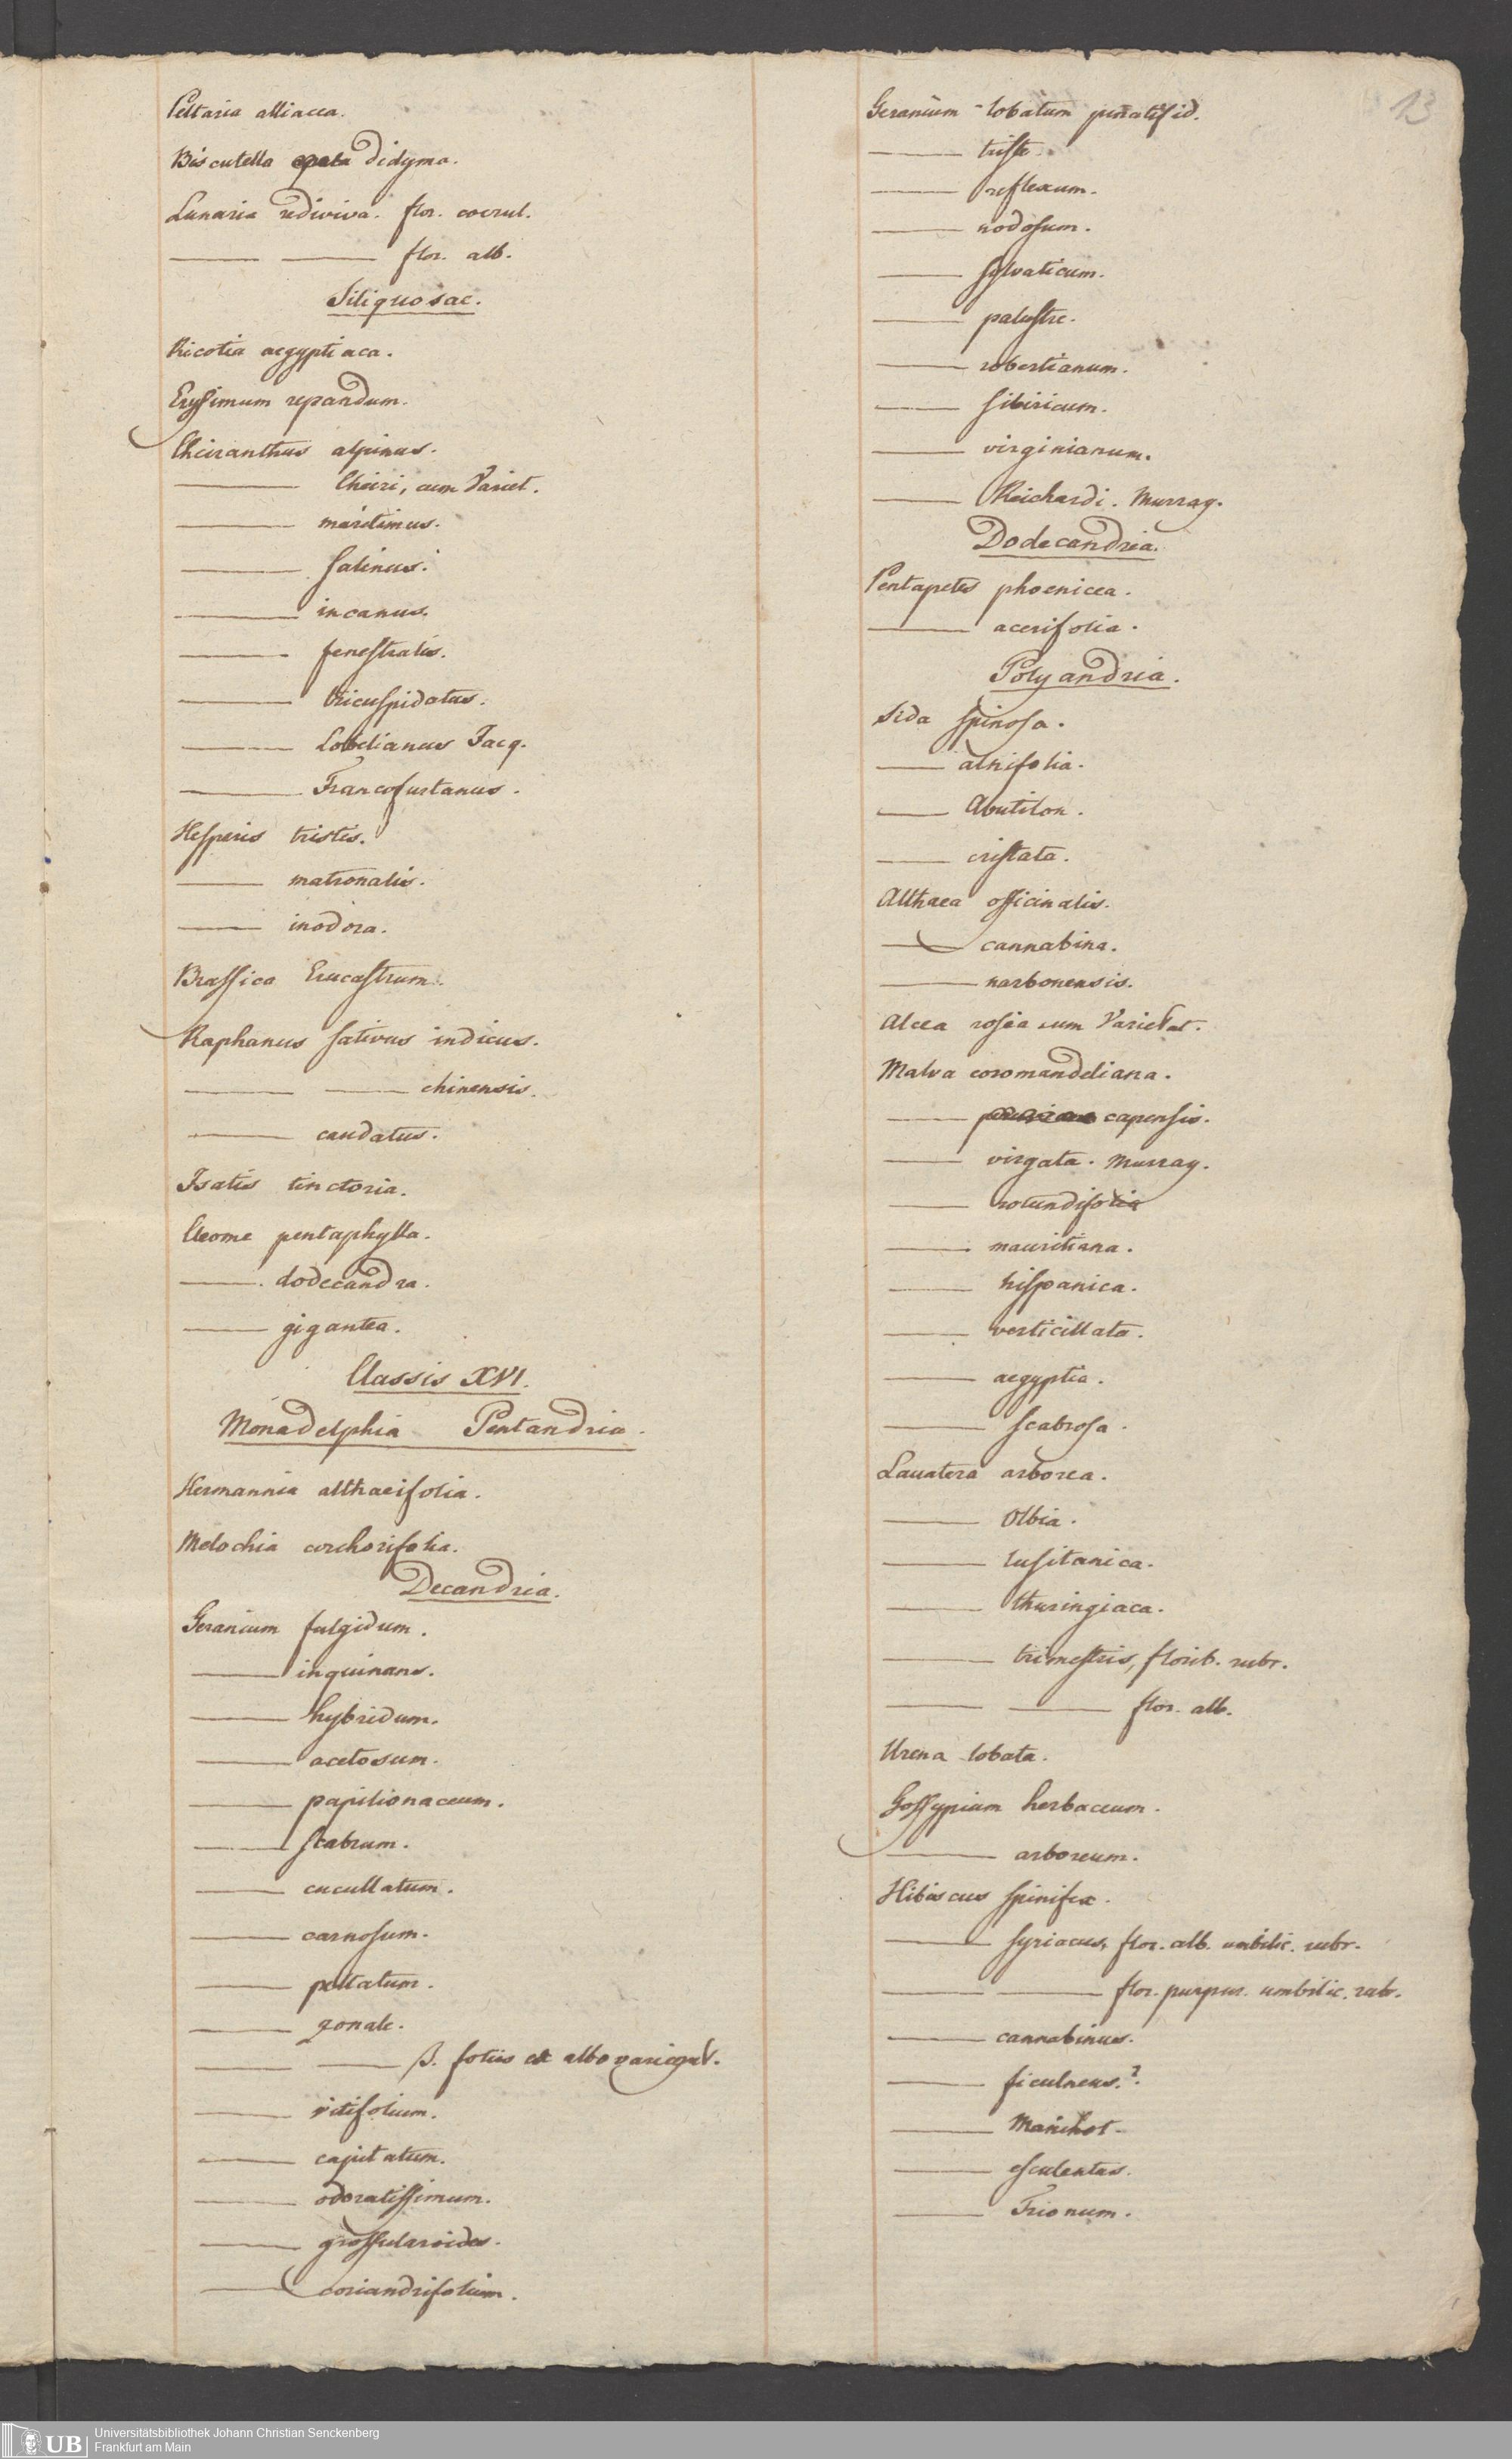 13
Peltaria alliacea.
Biscutella didyma.
Lunaria rediviva. flor. coerul.
—— —— flor. alb.
Siliquosae.
Ricotia aegyptiaca.
Erysimum repandum.
Cheiranthus alpinus.
—— Cheiri, cum Variet.
—— maritimus.
—— salinus.
—— incanus.
—— fenestralis.
—— tricuspidatus.
—— Lobelianus Jacq.
—— Francofurtanus.
Hesperis tristis.
—— matronalis.
—— inodora.
Brassica Erucastrum.
Raphanus sativus indicus.
—— —— chinensis.
—— caudatus.
Isatis tinctoria.
Cleome pentaphylla.
—— dodecandra.
—— gigantea.
Classis XVI.
Monadelphia Pentandria.
Hermannia althaeifolia.
Melochia corchorifolia.
Decandria.
Geranium fulgidum.
—— inquinans.
—— hybridum.
—— acetosum.
—— papilionaceum.
—— scabrum.
—— cucullatum.
—— carnosum.
—— peltatum.
—— zonale.
—— —— β. foliis ex albo variegat.
—— vitifolium.
—— capitatum.
—— odoratissimum.
—— grossularoides.
—— coriandrifolium.
Geranium lobatum pinatifid.
—— triste.
—— reflexum.
—— nodosum.
—— sylvaticum.
—— palustre.
—— robertianum.
—— sibiricum.
—— virginianum.
—— Reichardi. Murray.
Dodecandria.
Pentapetes phoenicea.
—— acerifolia.
Polyandria.
Sida spinosa.
—— alnifolia.
—— Abutilon.
—— cristata.
Althaea officinalis.
—— cannabina.
—— narbonensis.
Alcea rosea cum Varietat.
Malva coromandeliana.
—— capensis.
—— virgata. Murray.
—— rotundifolia
—— mauritiana.
—— hispanica.
—— verticillata.
—— aegyptia.
—— scabrosa.
Lavatera arborea.
—— Olbia.
—— lusitanica.
—— thuringiaca.
—— trimestris, florib. rubr.
—— —— flor. alb.
Urena lobata.
Gossypium herbaceum.
—— arboreum.
Hibiscus spinifex.
—— syriacus, flor. alb. umbilic. rubr.
—— —— flor. purpur. umbilic. rub.
—— cannabinus.
—— ficulneus.?
—— Manihot.
—— esculentus.
—— Trionum.
UB
Universitätsbibliothek Johann Christian Senckenberg
Frankfurt am Main